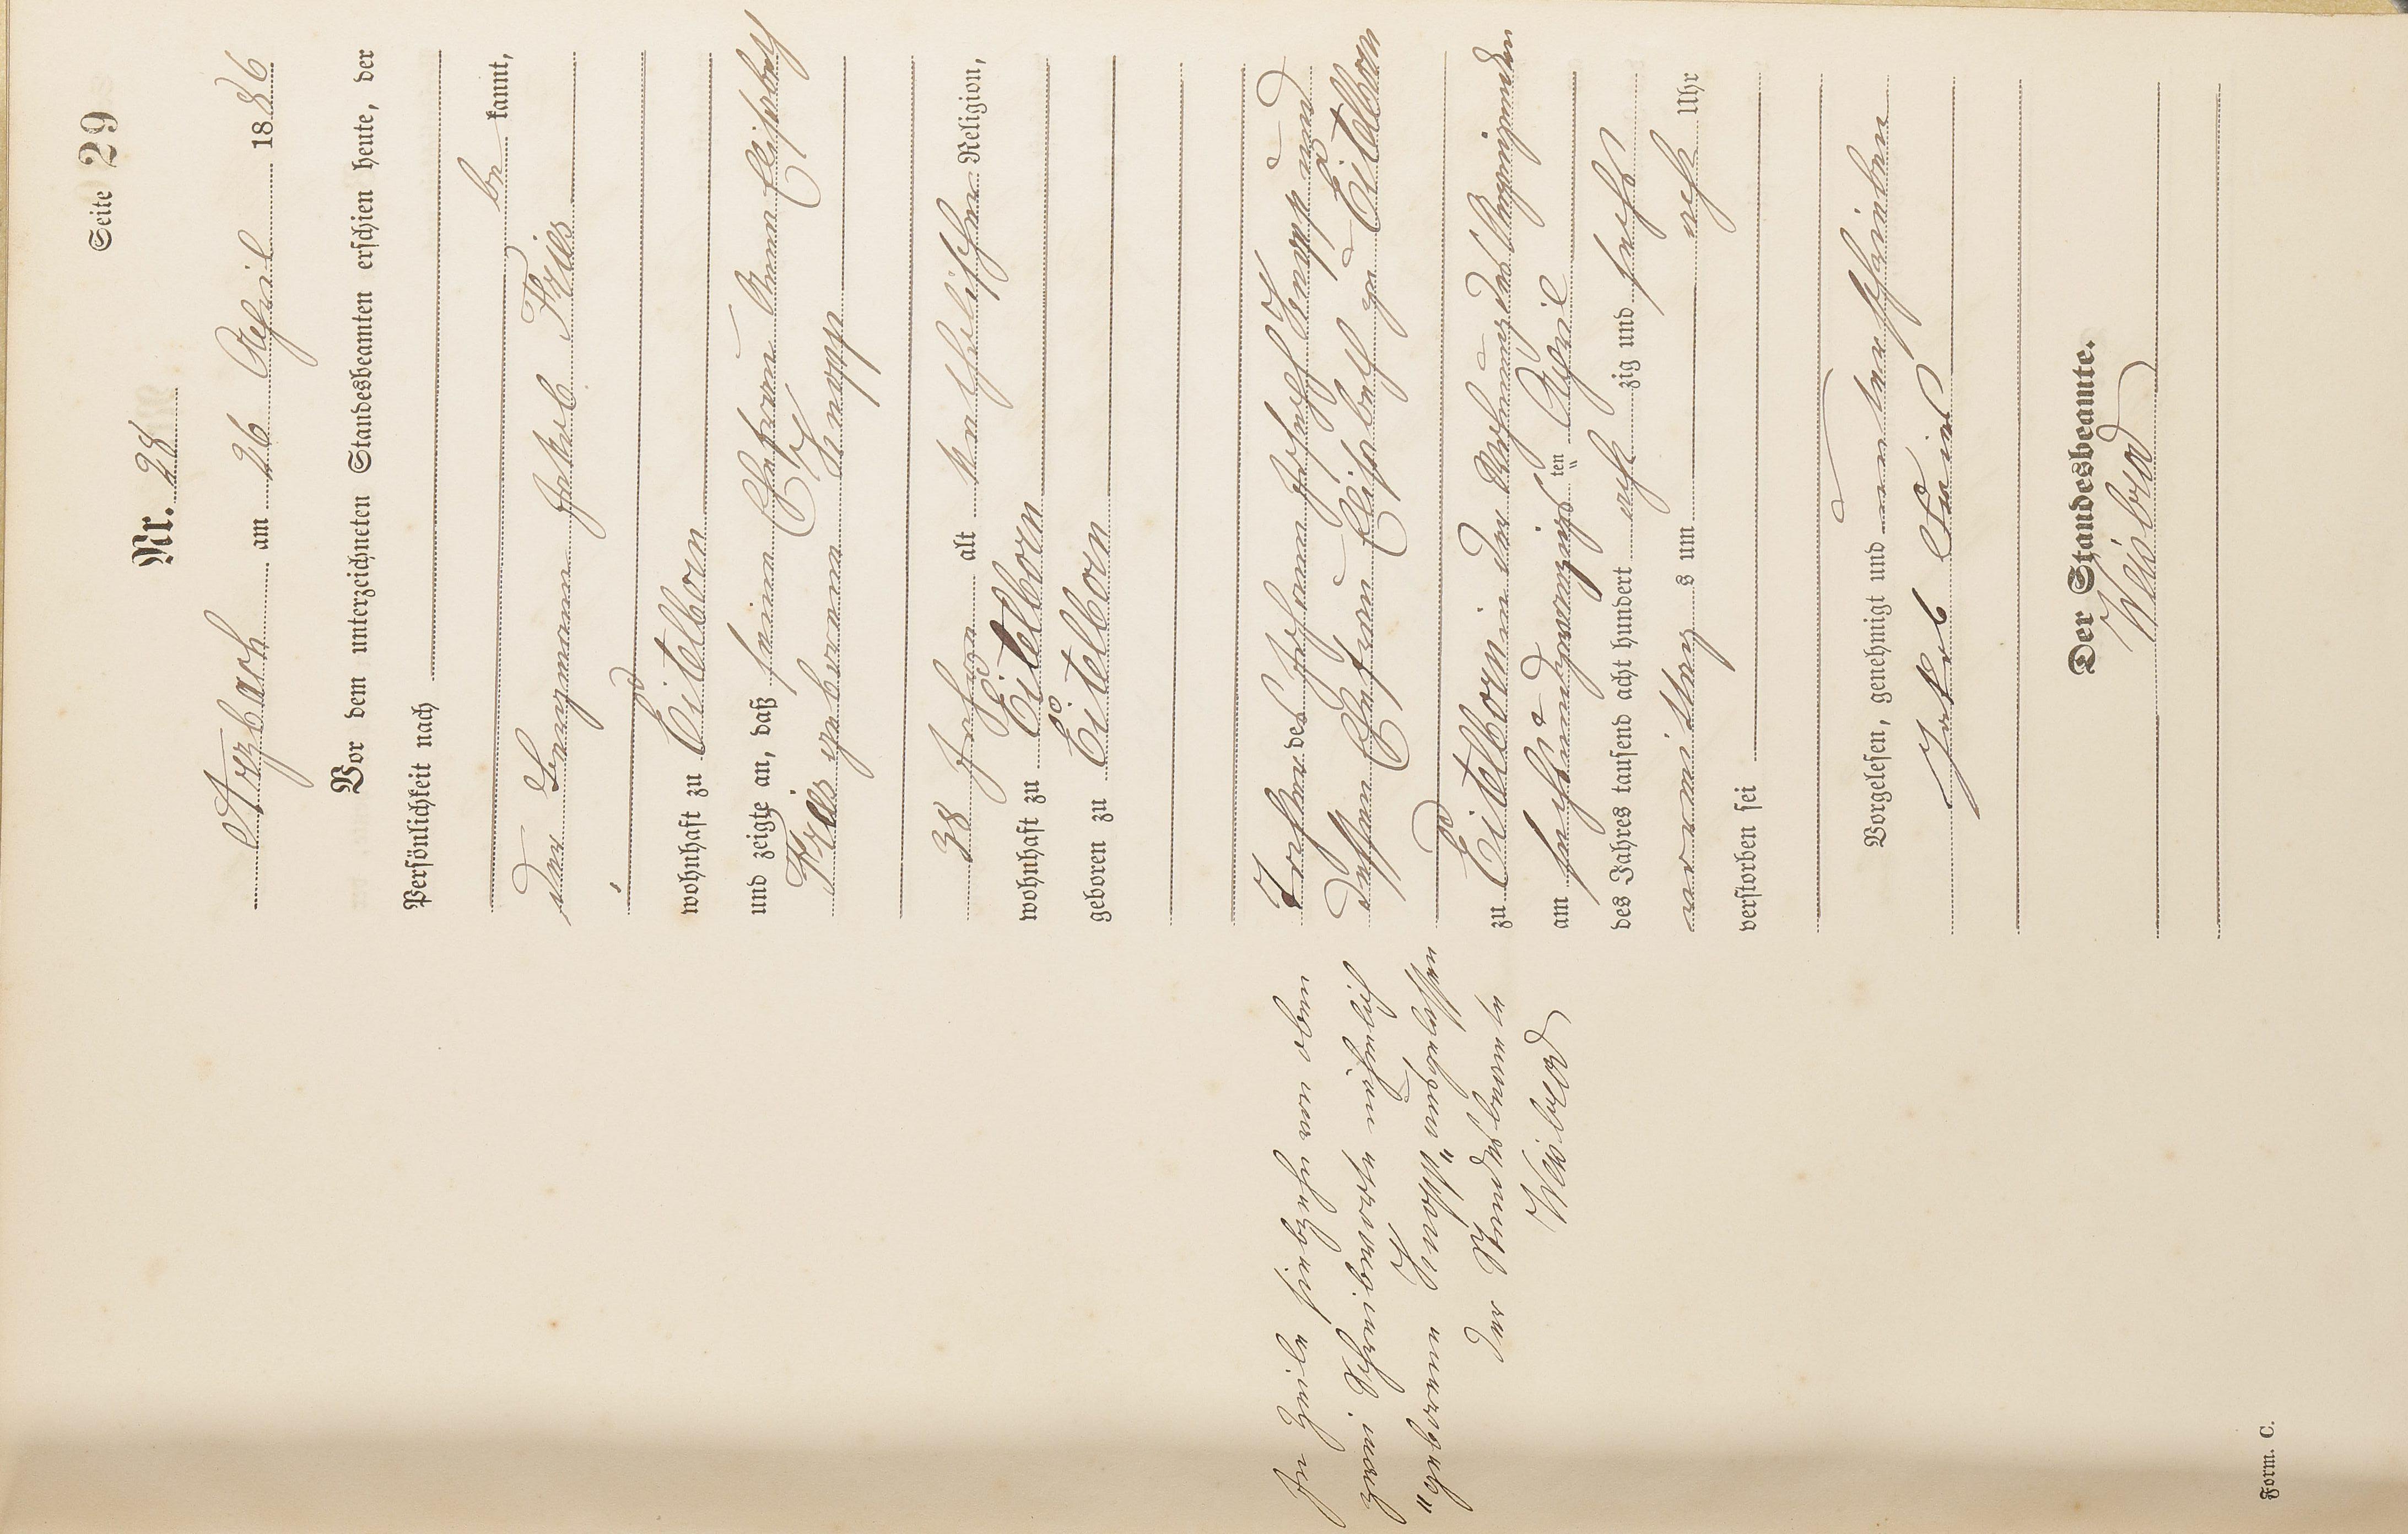 Seite 29
Nr. 28
Arzbach am 26 April 1886
Vor dem unterzeichneten Standesbeamten erschien heute, der
Persönlichkeit nach
be kannt,
der Bergmann Jakob Fries
wohnhaft zu Eitelborn
und zeigte an, daß seine Ehefrau Anna Elisabeth
Fries geborene Knopp
38 Jahre alt katholischer Religion,
wohnhaft zu Eitelborn
geboren zu Eitelborn
Tochter des Johann Joseph Knopp und
dessen Ehefrau Elisabeth zu Eitelborn
zu Eitelborn in der Wohnung des Anzeigenden
am sechsundzwanzigsten April
des Jahres tausend acht hundert acht zig und sechs
vormittags um acht Uhr
verstorben sei
Vorgelesen, genehmigt und unterschrieben
Jakob Fries
Der Standesbeamte.
Weisbrod
In Zeile sechzehn von oben
zwei Schreibworte
"geborenen Knopp"
Der Standesbeamte
Weisbrod
Form. C.